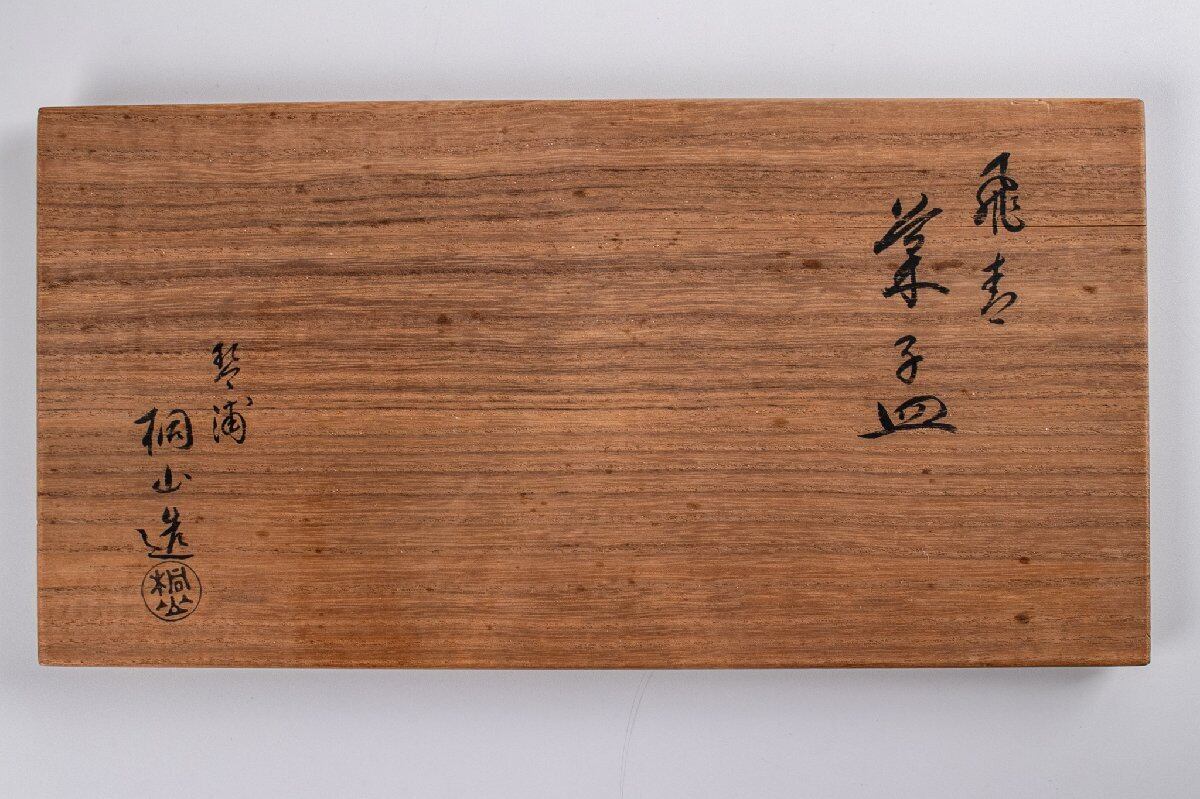 飛青
菓子皿
琴浦
桐山造
桐山